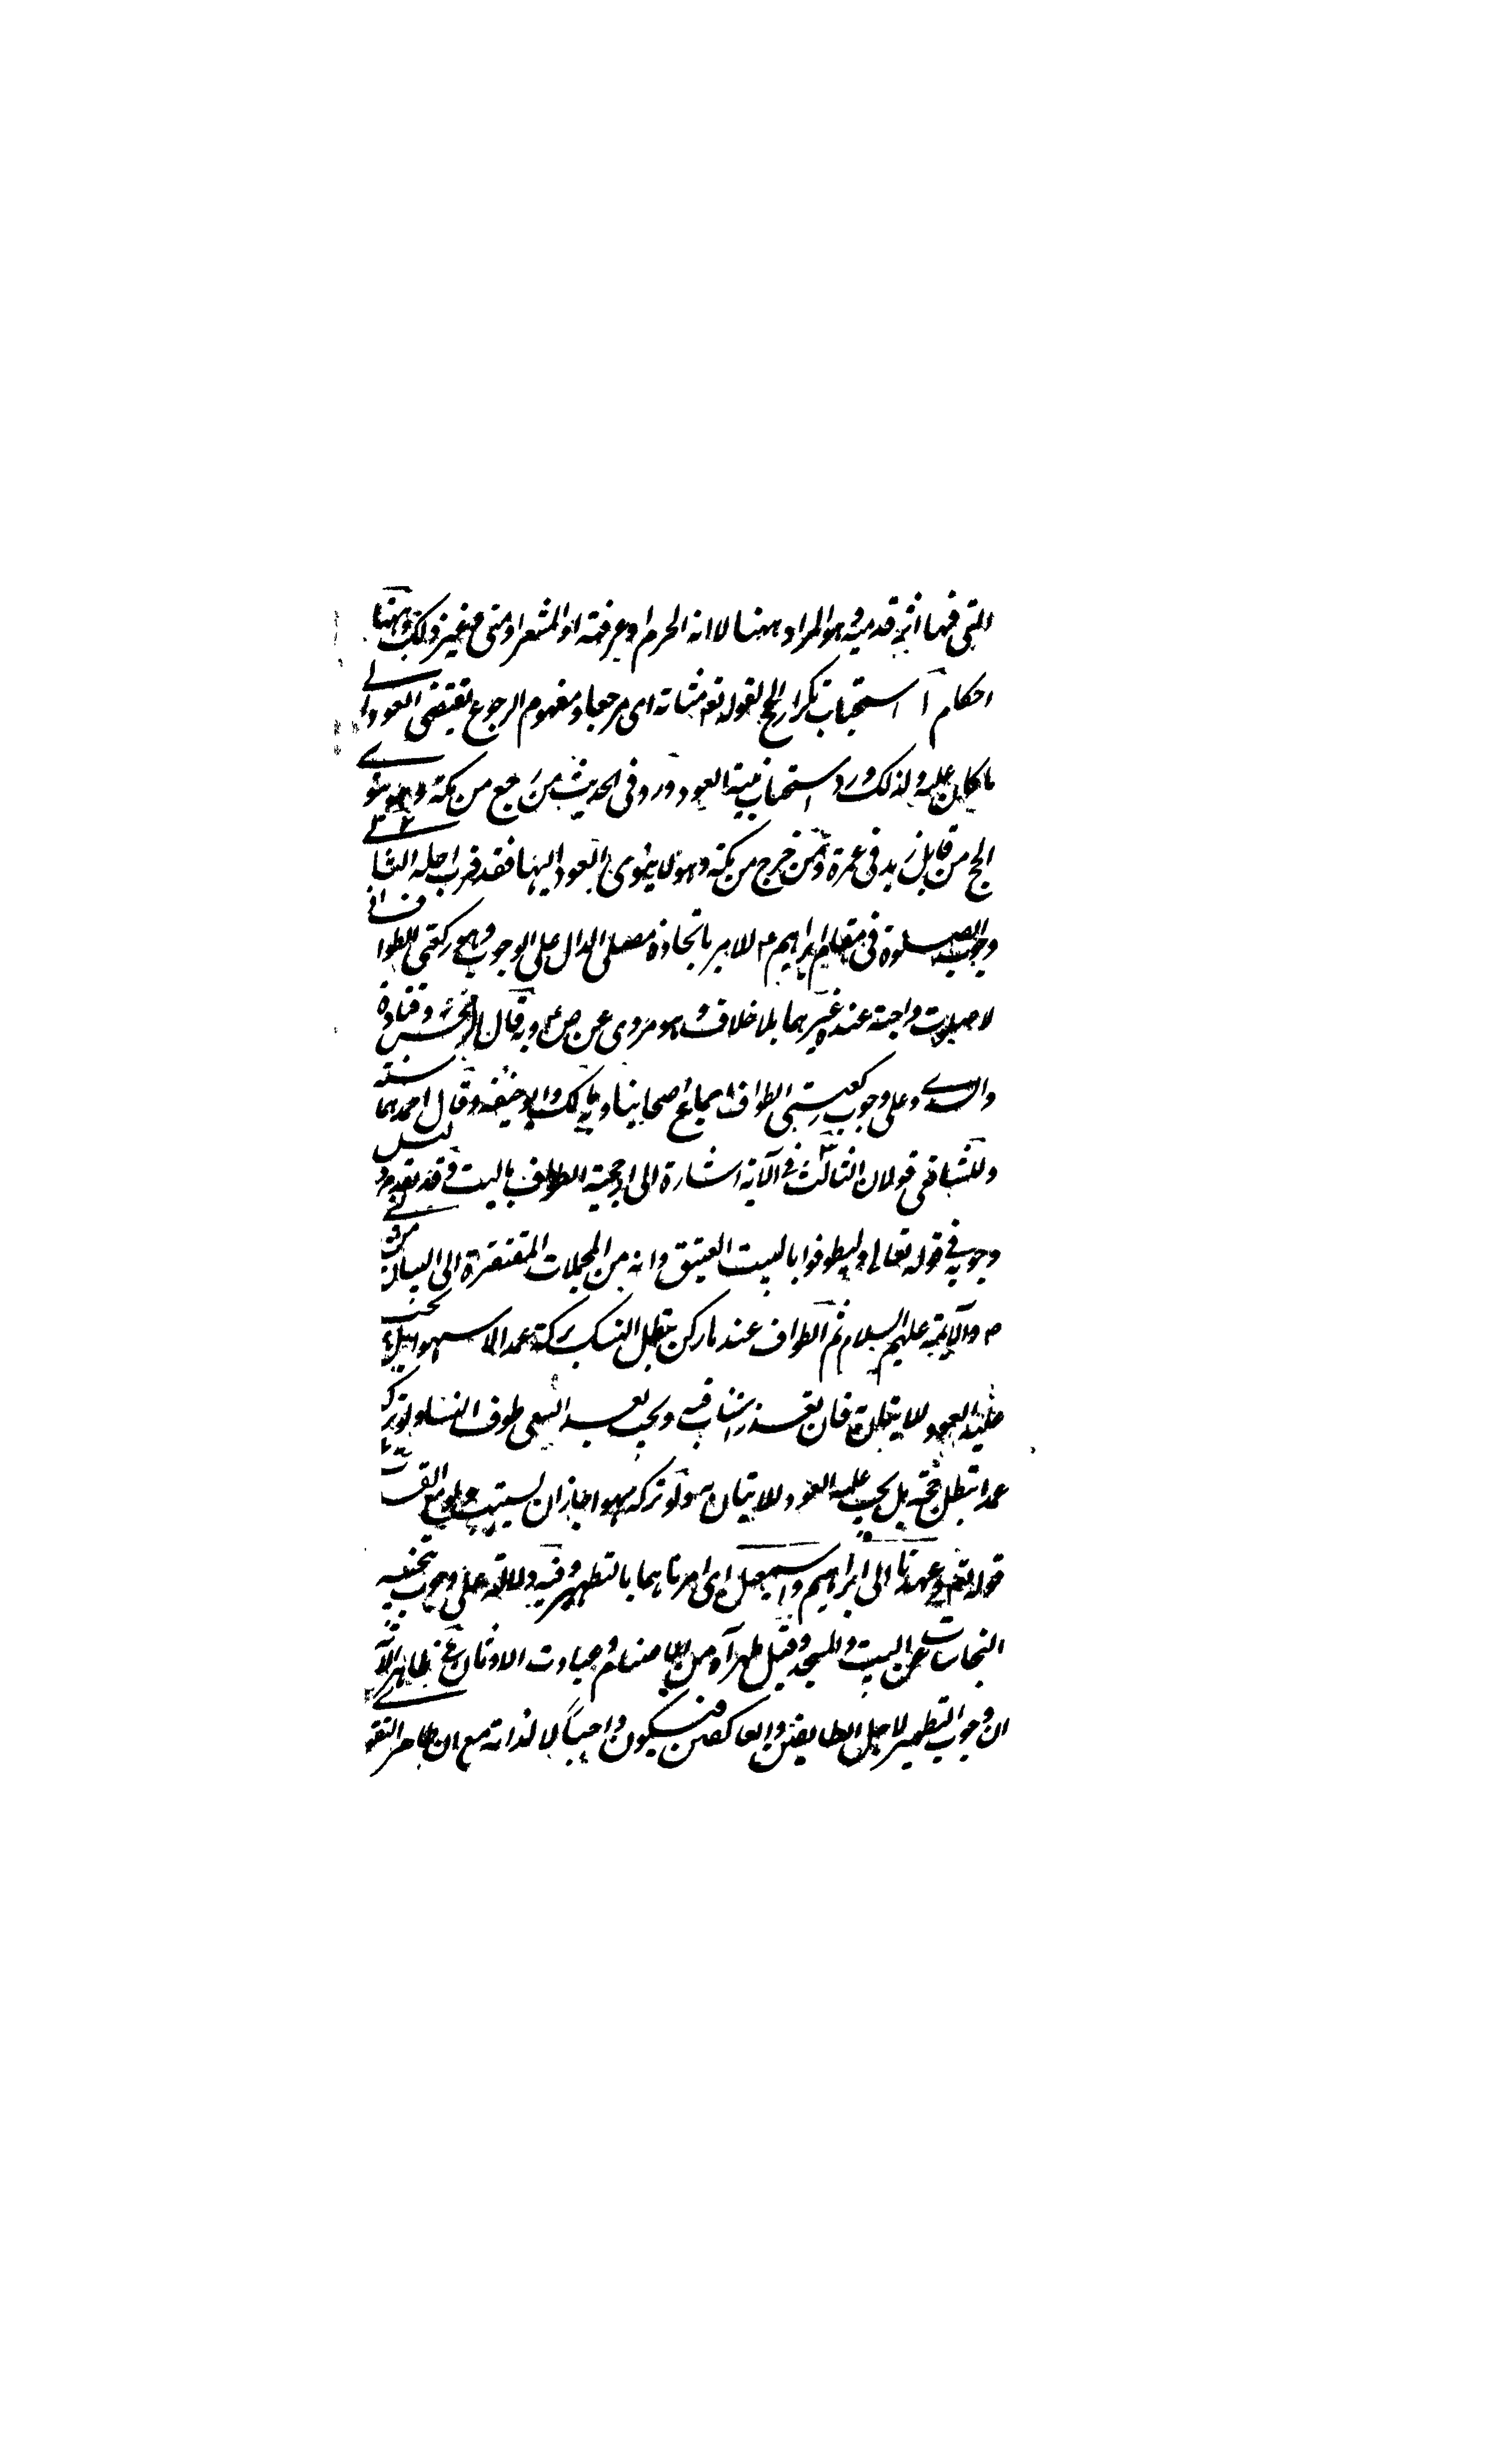 التي فيها اثر قدميه وهو المراد ههنا لا انه الحرم او عرفة او المشعر او منى وغير ذلك وههنا
احكام آ استحباب تكرار الحج لقوله تع مثابة اى مرجعا ومفهوم الرجوع يقتضى العود الى
ما كان عليه ولذلك ورد استحباب نية العود وورد في الحديث من رجع من مكة وهو ينوى
الحج من قابل زيد فى عمره ومن خرج من مكة وهو لا ينوى العود اليها فقد قرب اجله الثانى
وجوب الصلوة فى مقام ابراهيم ع للامر باتخاذه مصلى الدال على الوجوب وهى ركعتى الطواف اذ
لا صلوت واجبة عند غيرهما بلا خلاف وهو مروى عن ص ع وبه قال الحسن وقتادة
والسدى وعلى وجوب ركعتى الطواف اجماع اصحابنا وبه مالك وابو حنيفة وقال احمد هما سنة
وللشافعى قولان الثالث فى الآية اشارة الى ارجحية الطواف بالبيت وقد تقدم
وجوبه فى قوله تعالى وليطوفوا بالبيت العتيق وانه من المجملات المفتقرة الى البيان من
والآئمة عليهم السلام ثم الطواف عندنا ركن يبطل النسك بتركه عمدا لا سهوا بل يجب
عليه العود للاتيان به فان تعذر استناب فيه ويجب بعد السعى طواف النساء ولو تركه
عمدا لم تبطل حجة بل يجب عليه العود للاتيان به ولو تركه سهوا جاز ان يستنيب ولو مع القدرة
قوله تع وعهدنا الى ابراهيم واسمعيل اى امرناهما بالتطهير وفيه دلالة على وجوب تنحية
النجاسات عن البيت والمسجد وقيل طهراه من الاصنام وعبادت الاوثان ثم ظاهر الآية
ان وجوب التطهير لاجل الطايفين والعاكفين فيكون واجباً لا لذاته مع ان ظاهر الفقه